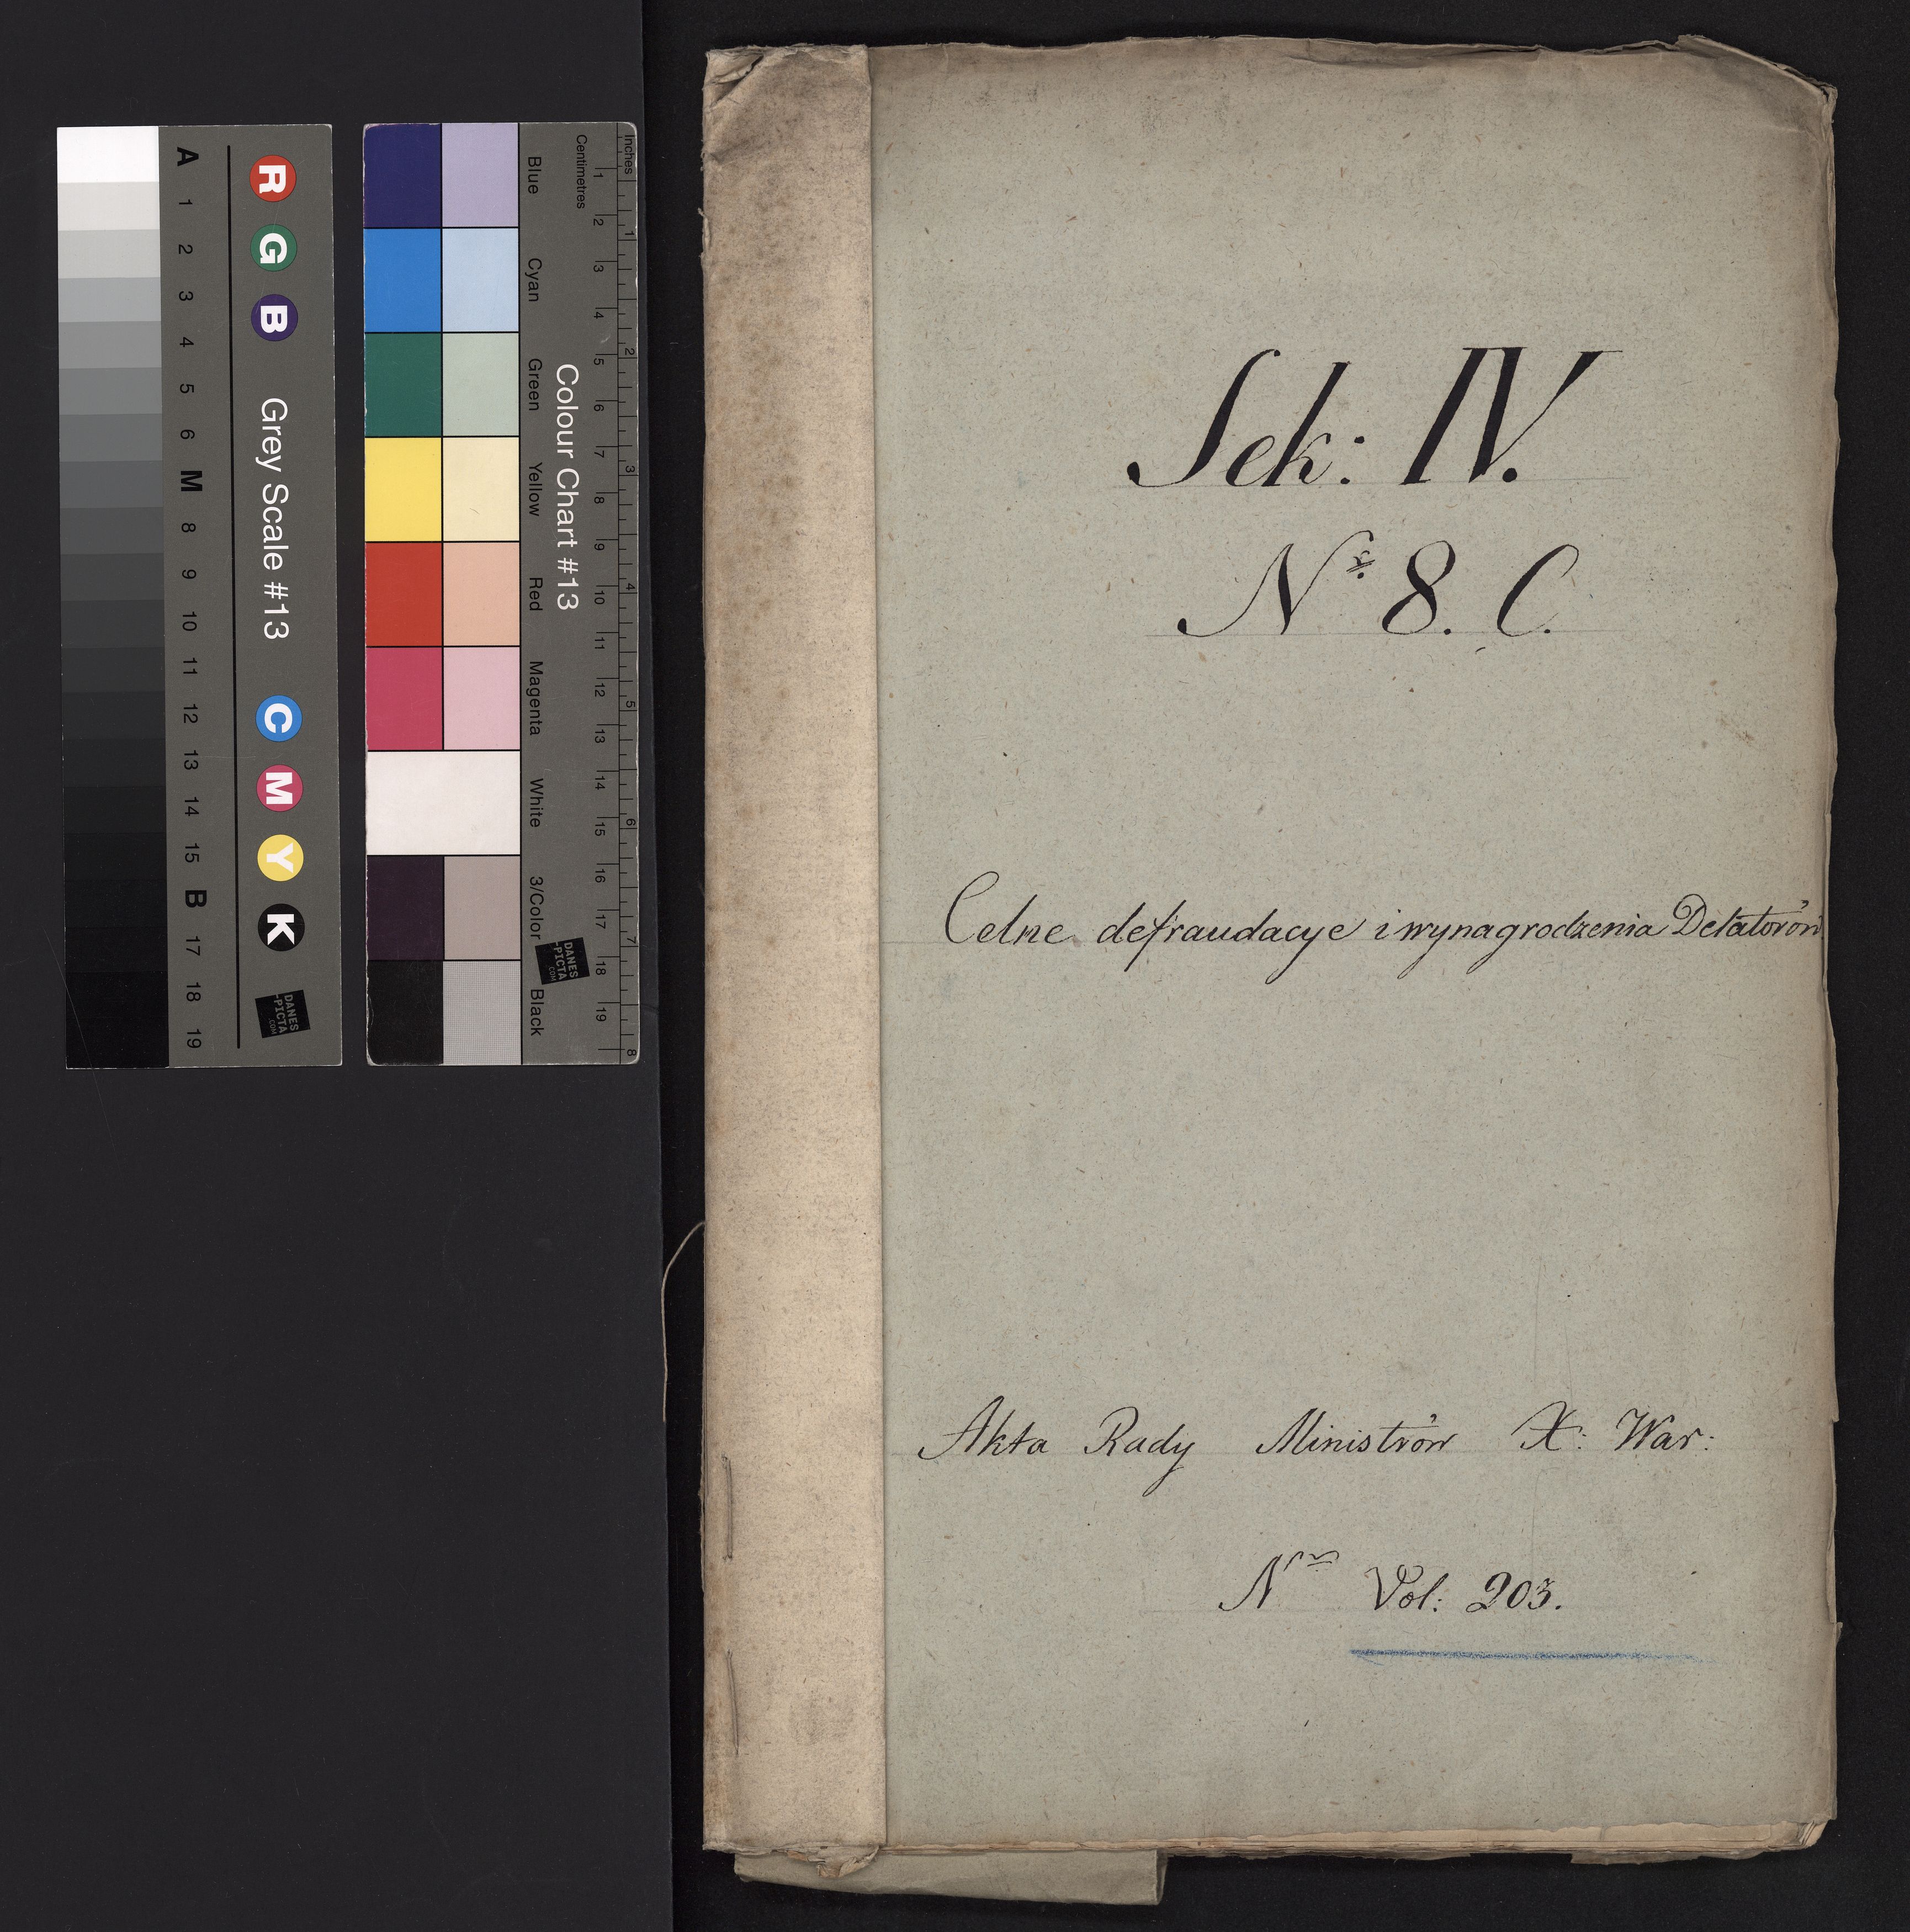 Sek: IV.
Nr 8. C.
Celne defraudacye i wynagrodzenia Delatorów
Akta Rady Ministrów X: War:
Nr Vol: 203.
R G B Grey Scale #13 C M Y K
A 1 2 3 4 5 6 M 8 9 10 11 12 13 14 15 B 17 18 19
DANES
-PICTA
.COM
Colour Chart #13
Blue Cyan Green Yellow Red Magenta White 3/Color Black
Inches 1 2 3 4 5 6 7 8
Centimetres 1 2 3 4 5 6 7 8 9 10 11 12 13 14 15 16 17 18 19
DANES
-PICTA
.COM